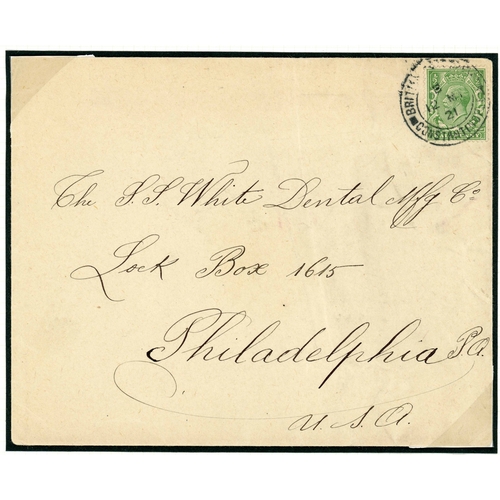 BRITI
CONSTANTINOP
21
The S.S. White Dental Mfg Co
Lock Box 1615
Philadelphia P.A.
U.S.A.